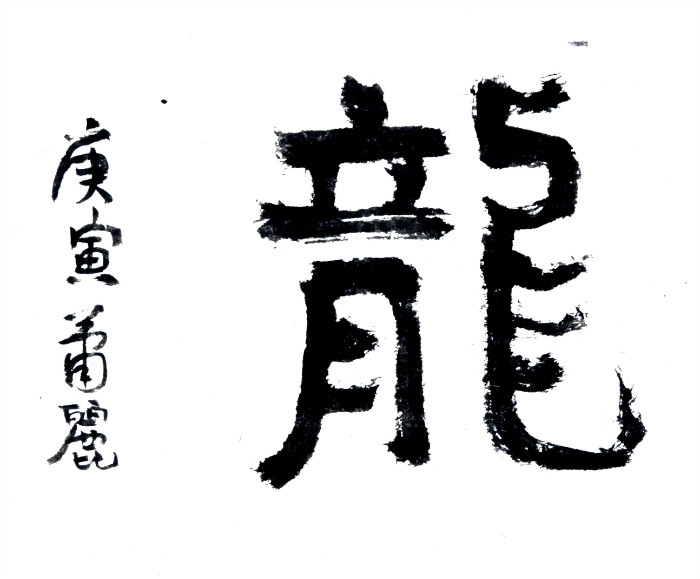 龍
庚寅萧麗